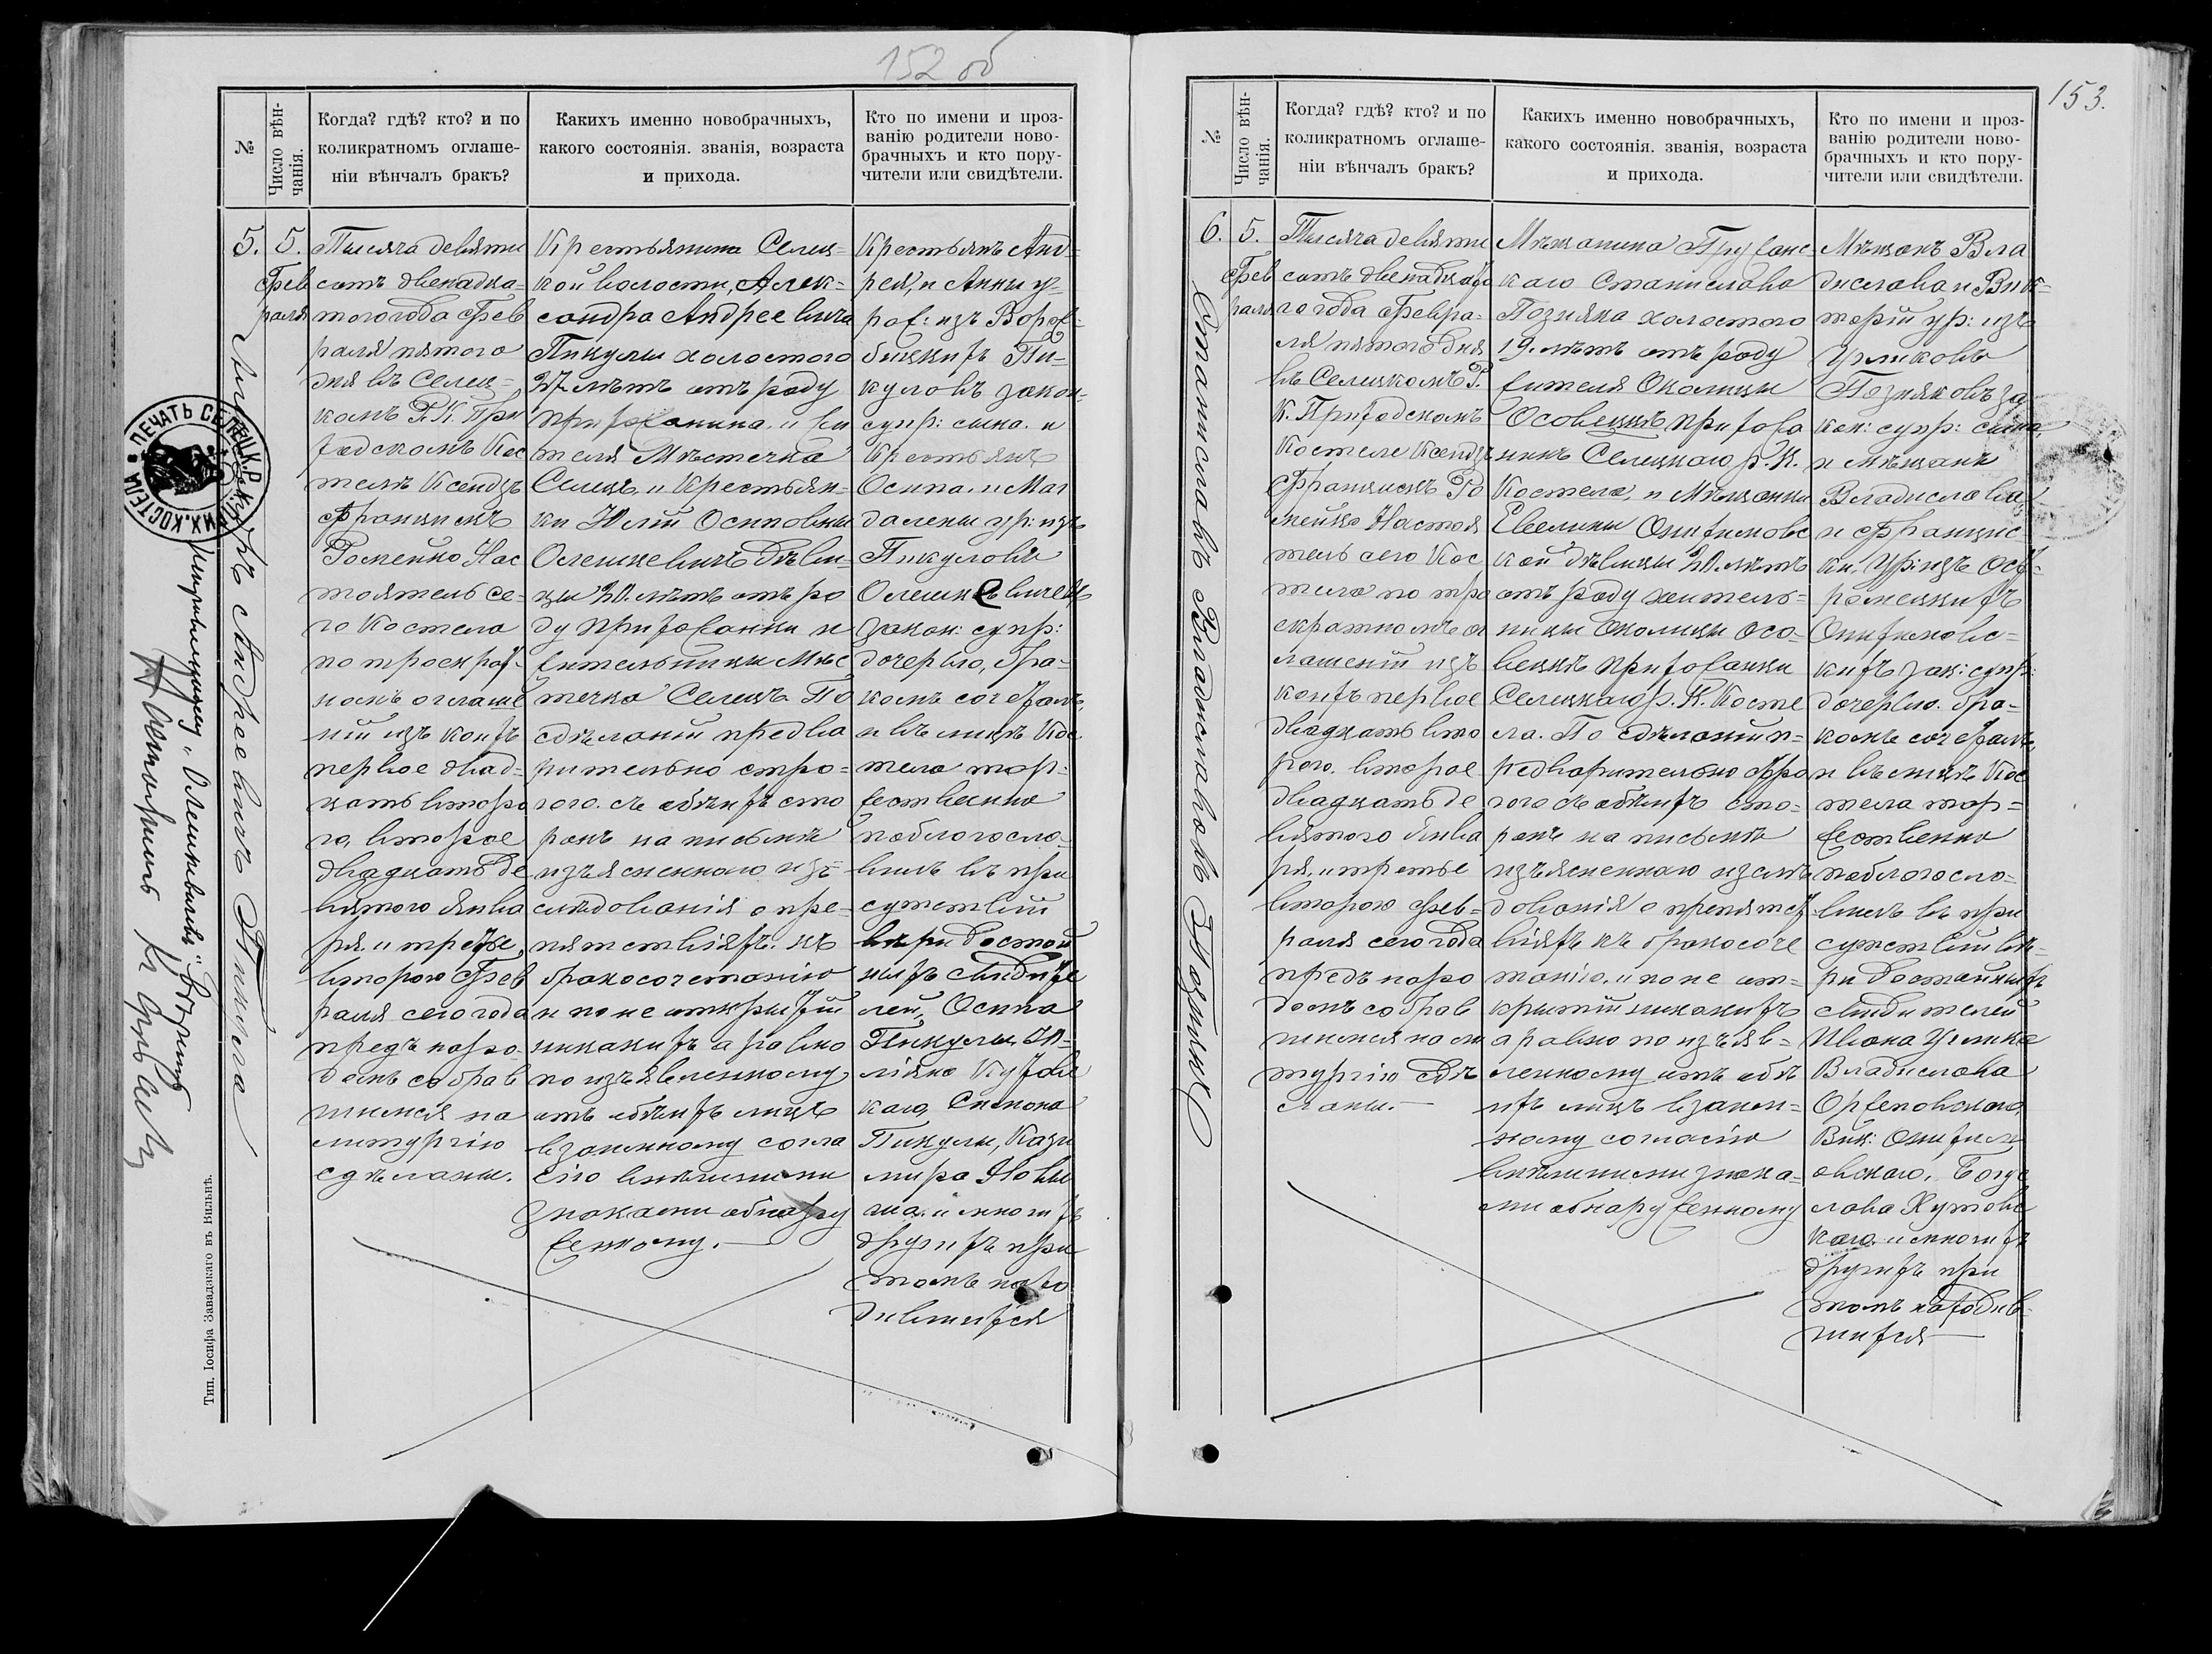 152 об
№
Число вѣн-
чанія.
Когда? гдѣ? кто? и по
коликратномъ оглаше-
ніи вѣнчалъ бракъ?
Какихъ именно новобрачныхъ,
какого состоянія. званія, возраста
и прихода.
Кто по имени и проз-
ванію родители ново-
брачныхъ и кто пору-
чители или свидѣтели.
5.
5.
Фев
раля
Александръ Андреевичъ Пикула
Тысяча девять
сотъ двенадца-
того года Фев
раля пятого
дня въ Селец-
комъ Р.К. При
ходскомъ Кос
телѣ Ксендзъ
Францискъ
Ромейко Нас
тоятель се-
го Костела
по троекрат-
номъ оглаше
ніи изъ коихъ
первое двад-
цать второ
го, второе
двадцать де
вятого Янва
ря. и третье,
второго Фев
раля сего года
предъ наро
домъ собрав
шимся на
литургію
сдѣланы.
Крестьянина Селец-
кой волости, Алек-
сандра Андреевича
Пикулы холостого
27 лѣтъ отъ роду
прихожанина. и жи
теля Мѣстечка
Селецъ. и Крестьян-
ки Юліи Осиповны
Олешкевичъ дѣви-
цы 20. лѣтъ отъ ро
ду прихожанки и
жительницы Мѣс
течка Селецъ. По
сдѣланіи предва
рительно стро-
гого. съ обѣихъ сто
ронъ на письмѣ
изъясненнаго изъ
слѣдованія о пре-
пятствіяхъ. къ
бракосочетанію
и по не открытіи
никакихъ а равно
по изъявленному
отъ обѣихъ лицъ
взаимному согла
сію внѣшними
знаками обнару
женному.
Крестьянъ Анд-
рея, и Анны у-
рож: изъ Вороб-
бицкихъ Пи-
куловъ закон-
супр: сына. и
Крестьянъ
Осипа. и Маг
далены ур: изъ
Пикуловъ
Олешкевичевъ
закон: супр:
дочерью, бра-
комъ сочеталъ,
и въ лицѣ Кос
тела тор-
жественно
поблагосло-
вилъ въ при
сутствіи
вѣри достой
ныхъ свидѣте
лей, Осипа
Пикулы Ю-
ліяна Кутов
каго, Симона
Пикулы, Кази
мира Нови
ча. и многихъ
другихъ при
томъ нахо
дившихся
ПЕЧАТЬ СЕЛЕЦК. Р. К. ПРИХ. КОСТЕЛА
Тип. Іосифа Завадзкаго въ Вильнѣ.
153.
№
Число вѣн-
чанія.
Когда? гдѣ? кто? и по
коликратномъ оглаше-
ніи вѣнчалъ бракъ?
Какихъ именно новобрачныхъ,
какого состоянія. званія, возраста
и прихода.
Кто по имени и проз-
ванію родители ново-
брачныхъ и кто пору-
чители или свидѣтели.
6.
5.
Фев
раля
Станиславъ Владиславовъ Познякъ
Тысяча девять
сотъ двенадцато
го года Февра-
ля пятого дня
въ Селецкомъ Р.
К. Приходскомъ
Костеле Ксендзъ
Францискъ Ро
мейко Настоя
тель сего Кос
тела по тро
екратномъ ог
лашеніи изъ
коихъ первое
двадцать вто
рого. второе
двадцать де
вятого Янва
ря. и третье
второго Фев-
раля сего года
предъ наро
домъ собрав
шимся на ли
тургію сдѣ
ланы.
Мѣщанина Пружанс-
каго Станислава
Позняка холостого
19. лѣтъ отъ роду
жителя Околицы
Осовецкъ прихожа
нинъ Селецкаго Р. К.
Костела, и Мѣщанки
Евелины Онихимовс
кой дѣвицы 20. лѣтъ
отъ роду житель-
ницы Околицы Осо-
вецкъ прихожанки
Селецкаго Р. К. Косте
ла. По сдѣланіи п-
редварительно стро
гого съ обѣихъ сто-
ронъ на письмѣ
изъясненнаго изслѣ
дованія о препятст
віяхъ къ бракосоче
танію. и по не от-
крытіи никакихъ
а равно по изъяв-
ленному отъ обѣ
ихъ лицъ взаим-
ному согласію
внѣшними знака-
ми обнаруженному
Мѣщанъ Вла
дислава и Вик-
торіи ур: изъ
Урликовъ
Позняковъ за
кон: супр: сына,
и мѣщанъ
Владислава
и Францис
ки, Ур: изъ Ост-
ромецкихъ
Онихимовс-
кихъ зак: супр:
дочерью. бра-
комъ сочеталъ,
и въ лицѣ Кос
тела тор-
жественно
поблагосло-
вилъ въ при
сутствіи вѣ-
ри достойныхъ
свидѣтелей
Ивана Урлика
Владислава
Оржеховскаго,
Вик: Онихим
овскаго, Богус
лава Кутовс
каго и многихъ
другихъ при
томъ находив-
шихся